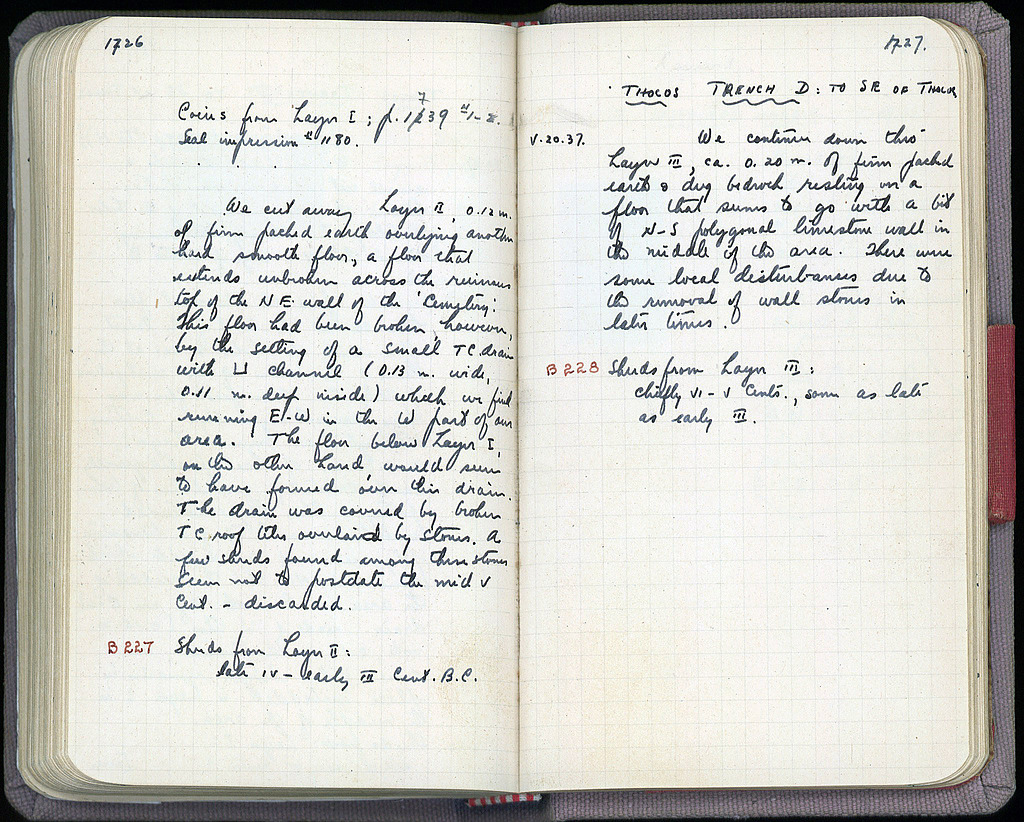 1726
Coins from Layer I; p. 1739 #1-2.
Seal impression # 1180.
We cut away Layer II, 0.12 m.
of firm packed earth overlying another
hard smooth floor, a floor that
extends unbroken across the ruinous
top of the NE wall of the 'Cemetery'.
This floor had been broken, however,
by the setting of a small TC drain
with ⊔ channel (0.13 m. wide,
0.11 m. deep inside) which we find
running E-W in the W part of our
area. The floor below Layer I,
on the other hand, would seem
to have formed over this drain.
The drain was covered by broken
TC roof tiles overlaid by stones. A
few sherds found among these stones
seem not to postdate the mid V
Cent. - discarded.
B 227 Sherds from Layer II:
late IV - early III Cent. B.C.
1727.
THOLOS TRENCH D: TO SE OF THOLOS
V.20.37. We continue down thro'
Layer III, ca. 0.20 m. of firm packed
earth & dug bedrock resting on a
floor that seems to go with a bit
of N-S polygonal limestone wall in
the middle of the area. There were
some local disturbances due to
the removal of wall stones in
later times.
B 228 Sherds from Layer III:
chiefly VI-V Cents., some as late
as early III.